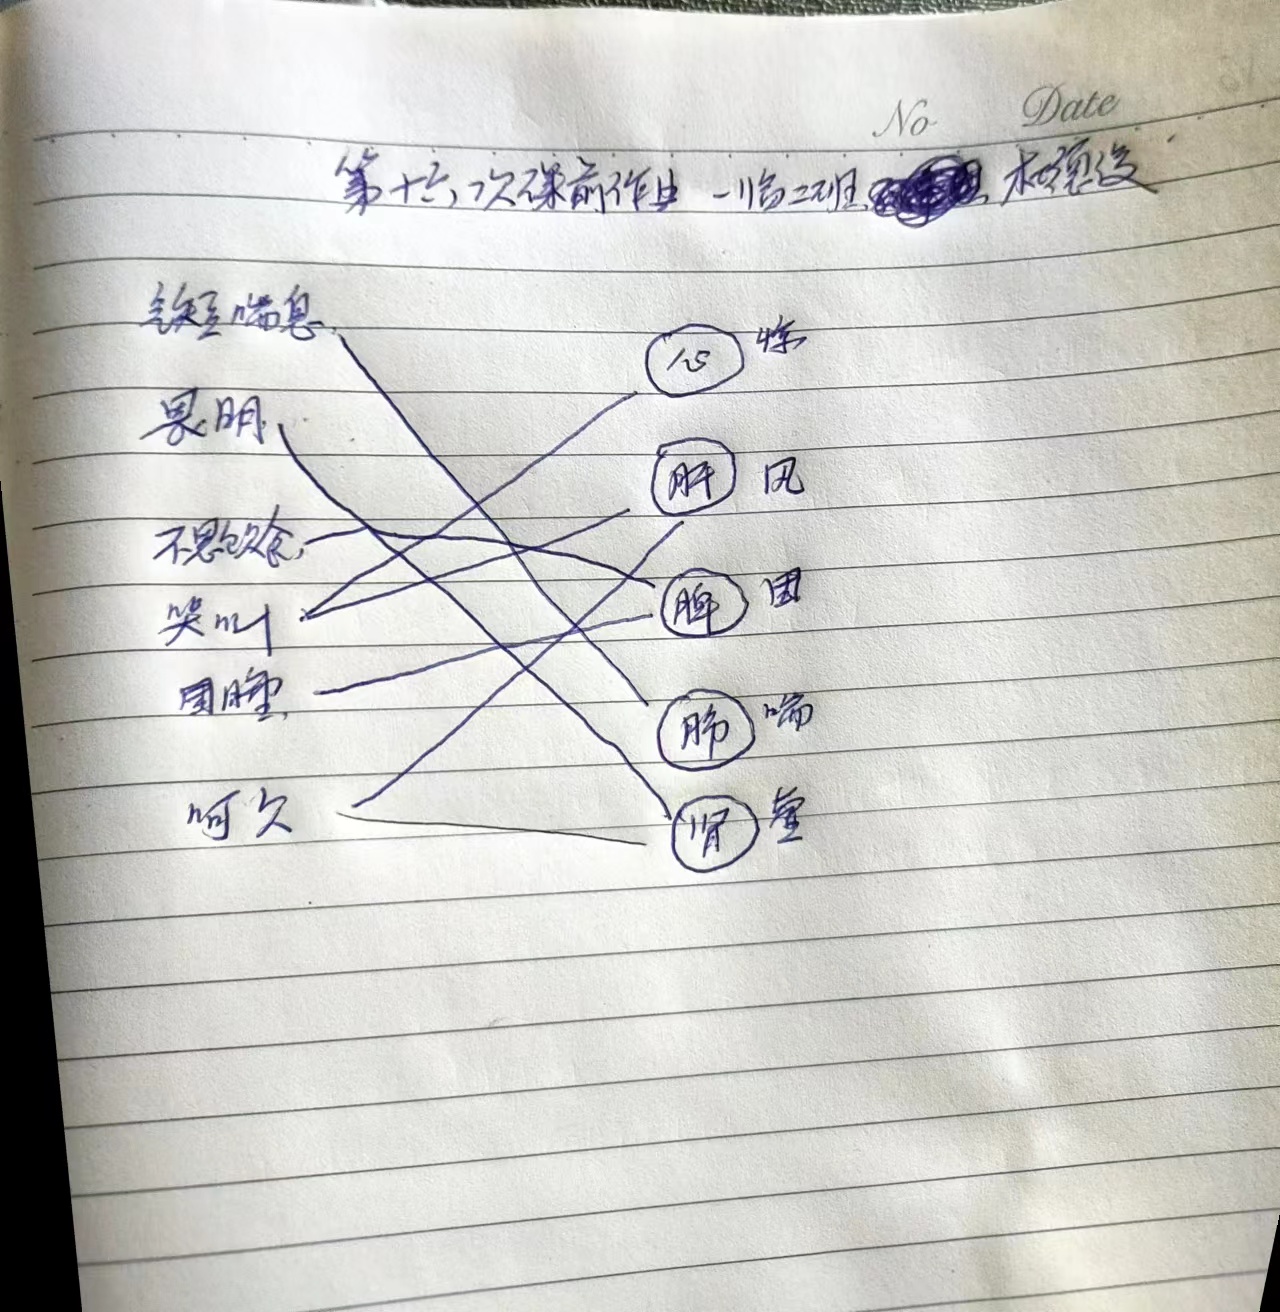 No Date
第十六次课前作业 一临二班
喘息
心 惊
畏明
肝 风
不思饮食
脾 困
哭叫
困睡
肺 喘
呵欠
肾 虚